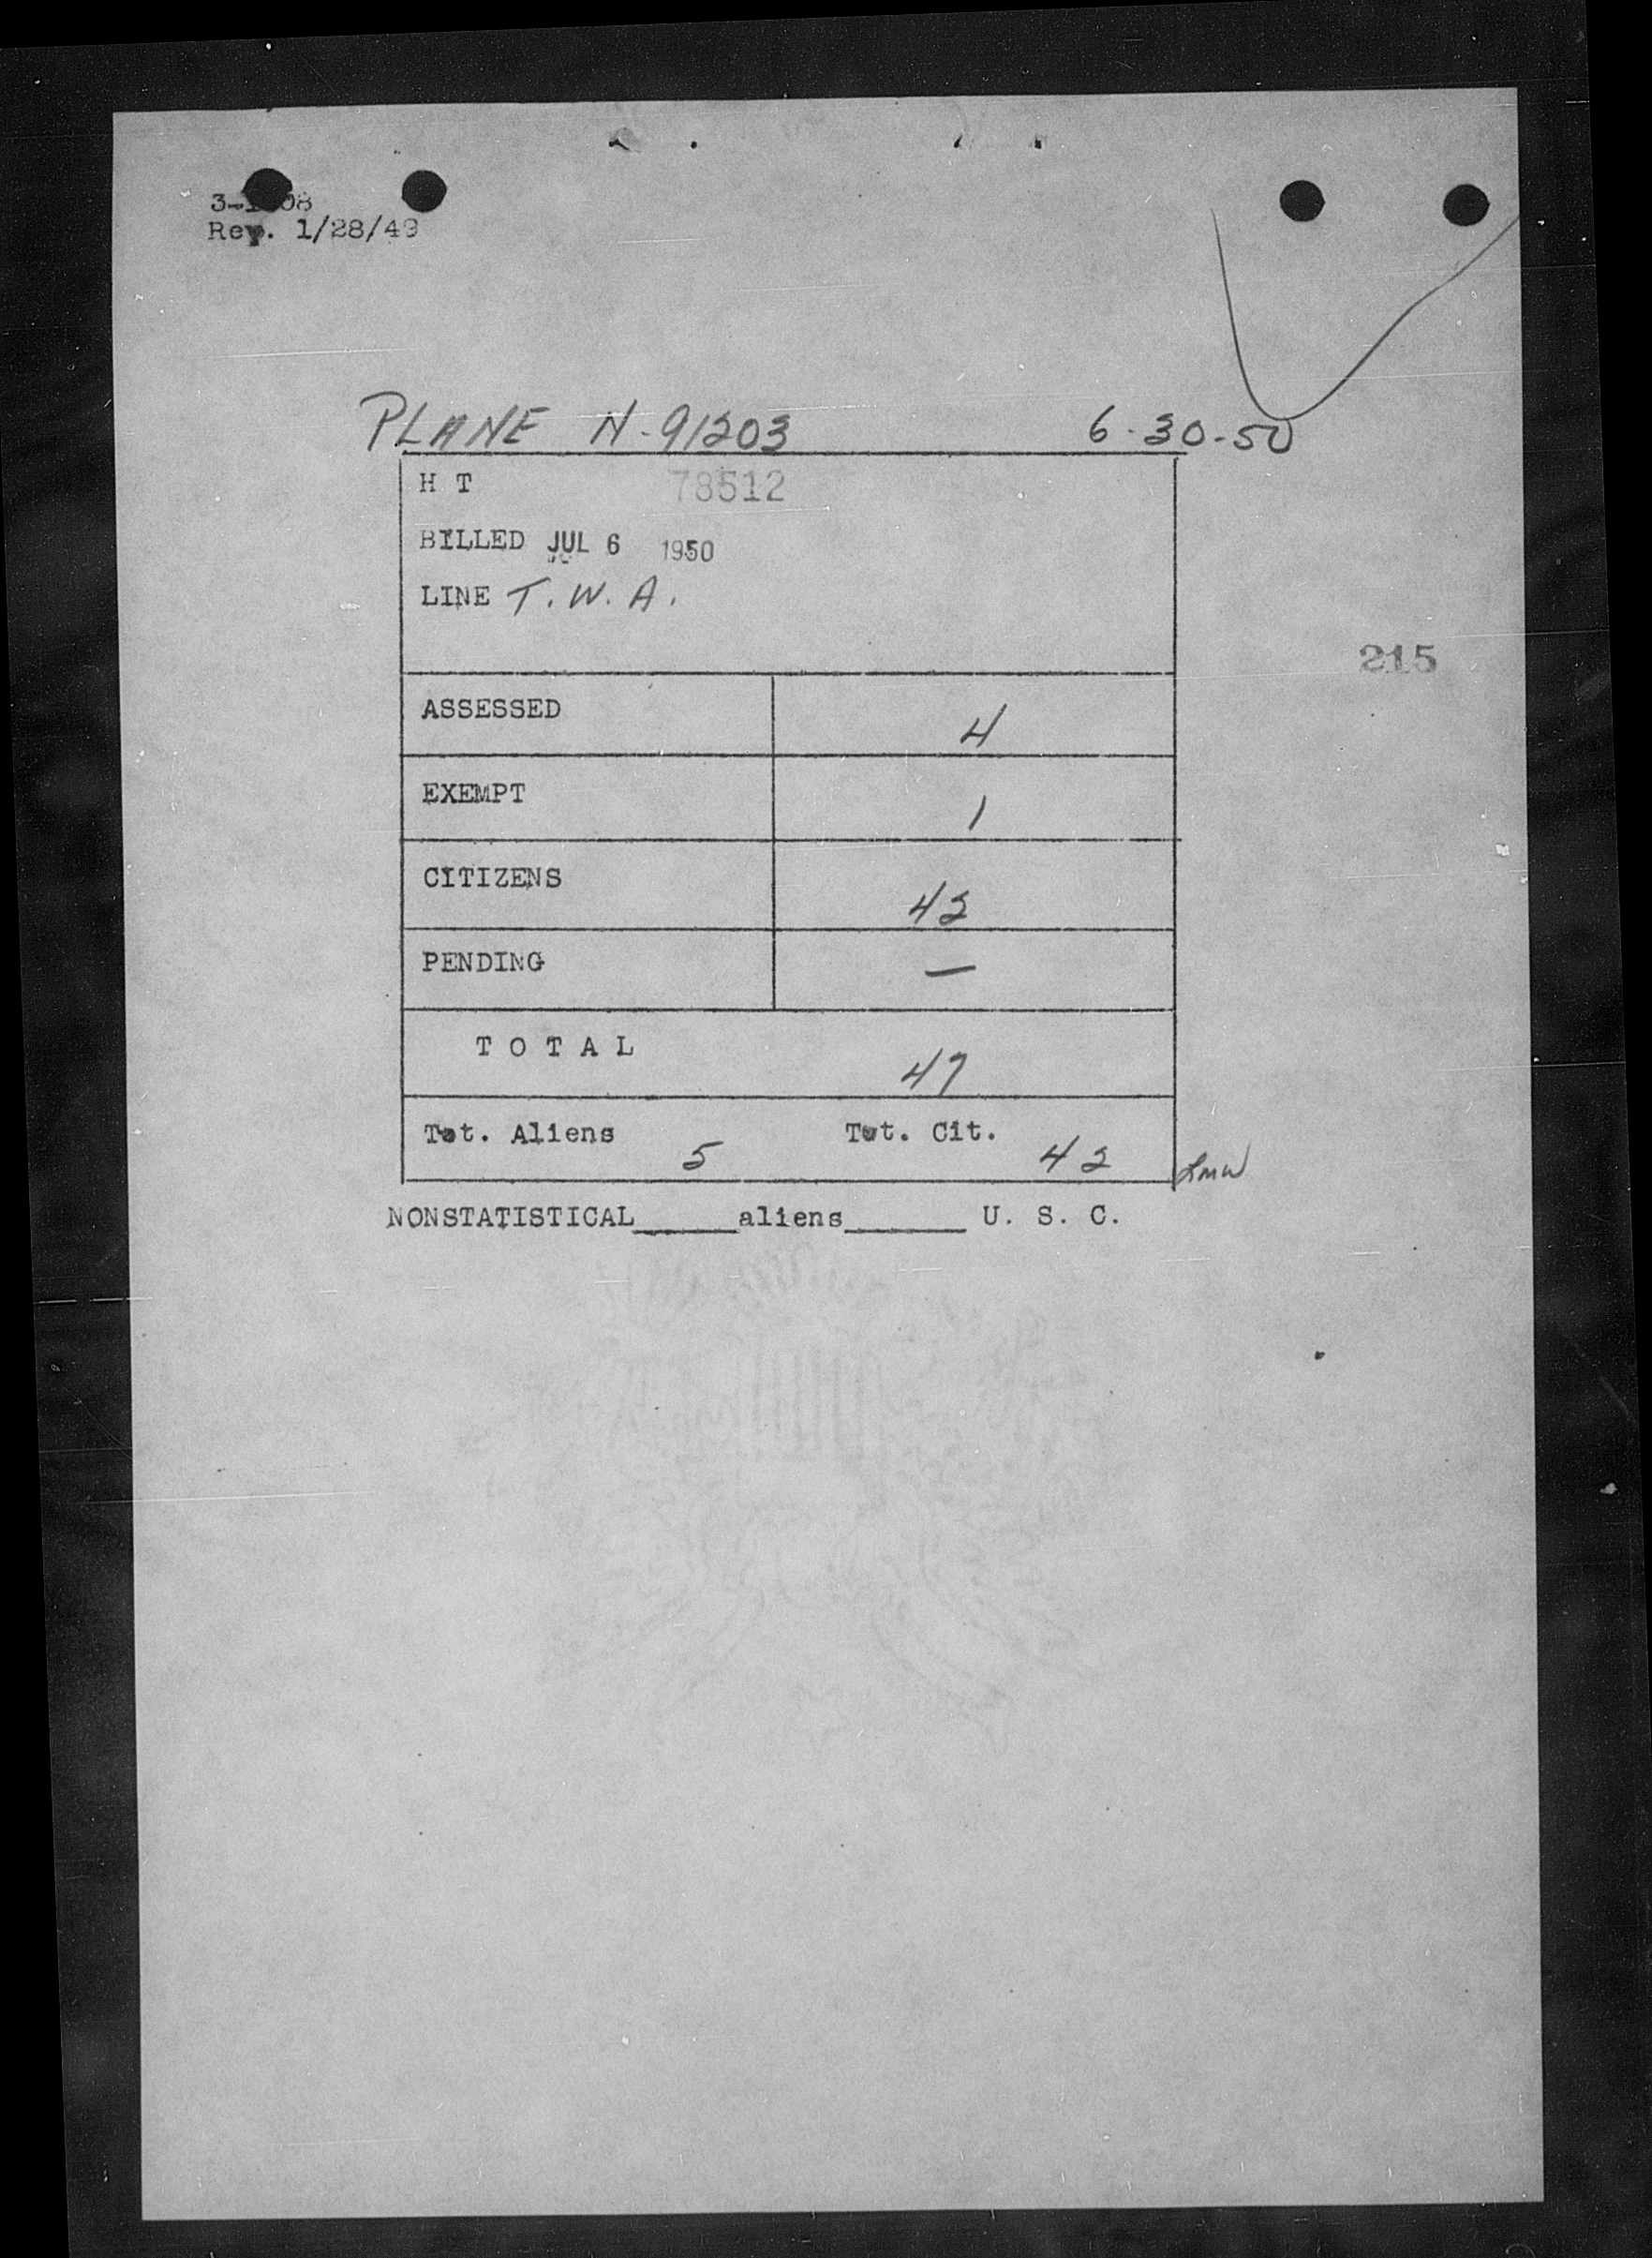 Rev. 1/28/49
PLANE N-91203 6-30-50
H T 78512
BILLED JUL 6 1950
LINE T. W. A.
215
ASSESSED 4
EXEMPT 1
CITIZENS 42
PENDING —
T O T A L 47
Tot. Aliens 5 Tot. Cit. 42
NONSTATISTICAL______aliens_______ U. S. C.